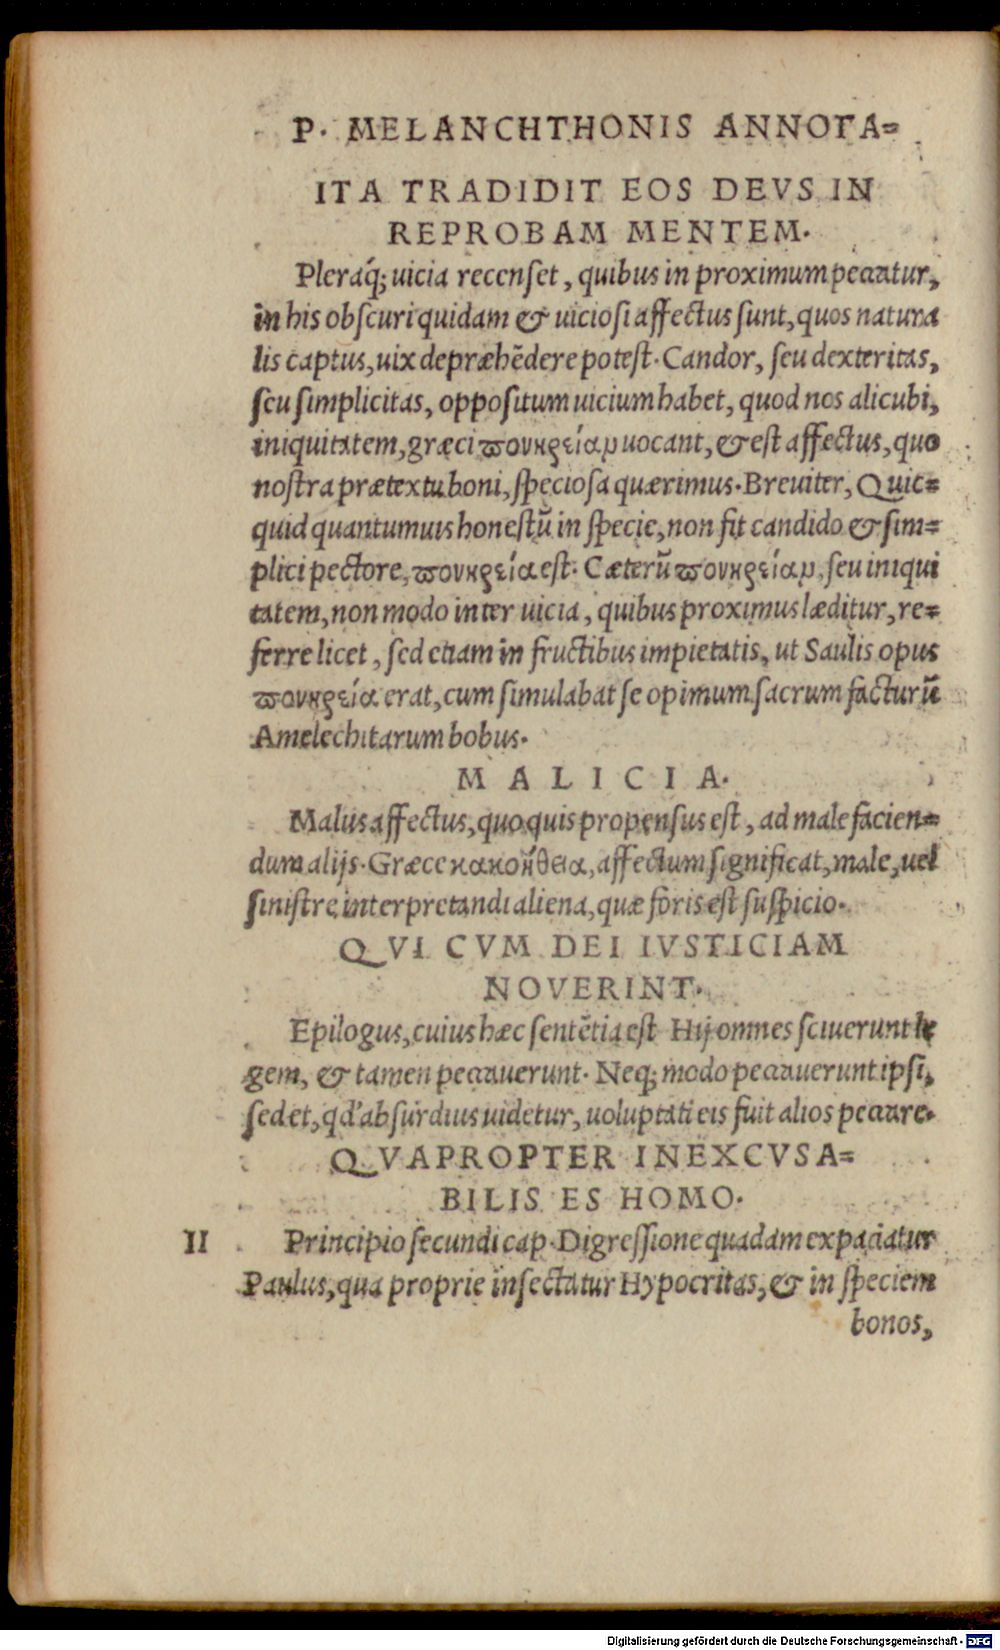 P. MELANCHTHONIS ANNOTA=
ITA TRADIDIT EOS DEVS IN
REPROBAM MENTEM.
Pleraq́; uicia recenset, quibus in proximum peccatur,
in his obscuri quidam & uiciosi affectus sunt, quos natura
lis captus, uix depræhẽdere potest. Candor, seu dexteritas,
seu simplicitas, oppositum uicium habet, quod nos alicubi,
iniquitatem, græci πονηρείαν uocant, & est affectus, quo
nostra prætextu boni, speciosa quærimus. Breuiter, Quic=
quid quantumuis honestũ in specie, non fit candido & sim=
plici pectore, πονηρεία est. Cæterũ πονηρείαν, seu iniqui
tatem, non modo inter uicia, quibus proximus læditur, re=
ferre licet, sed etiam in fructibus impietatis, ut Saulis opus
πονηρεία erat, cum simulabat se opimum sacrum facturũ
Amelechitarum bobus.
MALICIA.
Malus affectus, quo quis propensus est, ad male facien=
dum alijs. Græce κακοήθεια, affectum significat, male, uel
sinistre interpretandi aliena, quæ foris est suspicio.
QVI CVM DEI IVSTICIAM
NOVERINT.
Epilogus, cuius hæc sentẽtia est Hij omnes sciuerunt le
gem, & tamen peccauerunt. Neq; modo peccauerunt ipsi,
sed et, qd' absurdius uidetur, uoluptati eis fuit alios peccare.
QVAPROPTER INEXCVSA=
BILIS ES HOMO.
II Principio secundi cap. Digressione quadam expaciatur
Paulus, qua proprie insectatur Hypocritas, & in speciem
bonos,
Digitalisierung gefördert durch die Deutsche Forschungsgemeinschaft - DFG